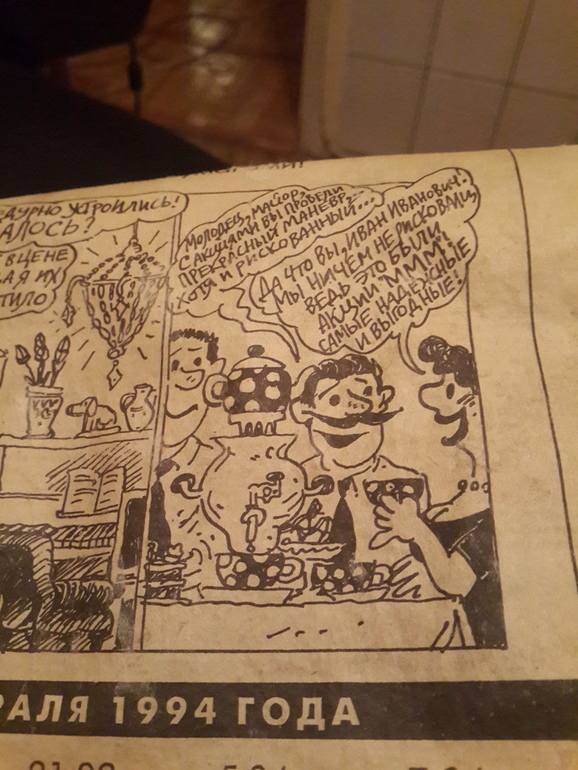 ДУРНО УСТРОИЛИСЬ!
АЛОСЬ?
В ЦЕНЕ
Я ИХ
МОЛОДЕЦ, МАЙОР,
С АКЦИЯМИ ВЫ ПРОВЕЛИ
ПРЕКРАСНЫЙ МАНЕВР,
ХОТЯ И РИСКОВАННЫЙ...
ДА ЧТО ВЫ, ИВАН ИВАНОВИЧ!
МЫ НИЧЕМ НЕ РИСКОВАЛИ,
ВЕДЬ ЭТО БЫЛИ
АКЦИИ "МММ",
САМЫЕ НАДЕЖНЫЕ
И ВЫГОДНЫЕ!
РАЛЯ 1994 ГОДА